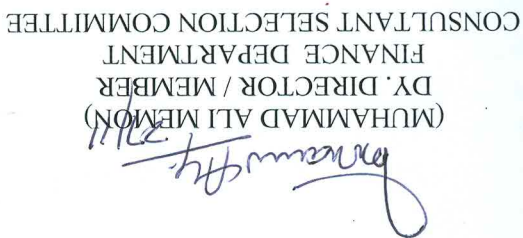 27/11
(MUHAMMAD ALI MEMON)
DY. DIRECTOR / MEMBER
FINANCE DEPARTMENT
CONSULTANT SELECTION COMMITTEE